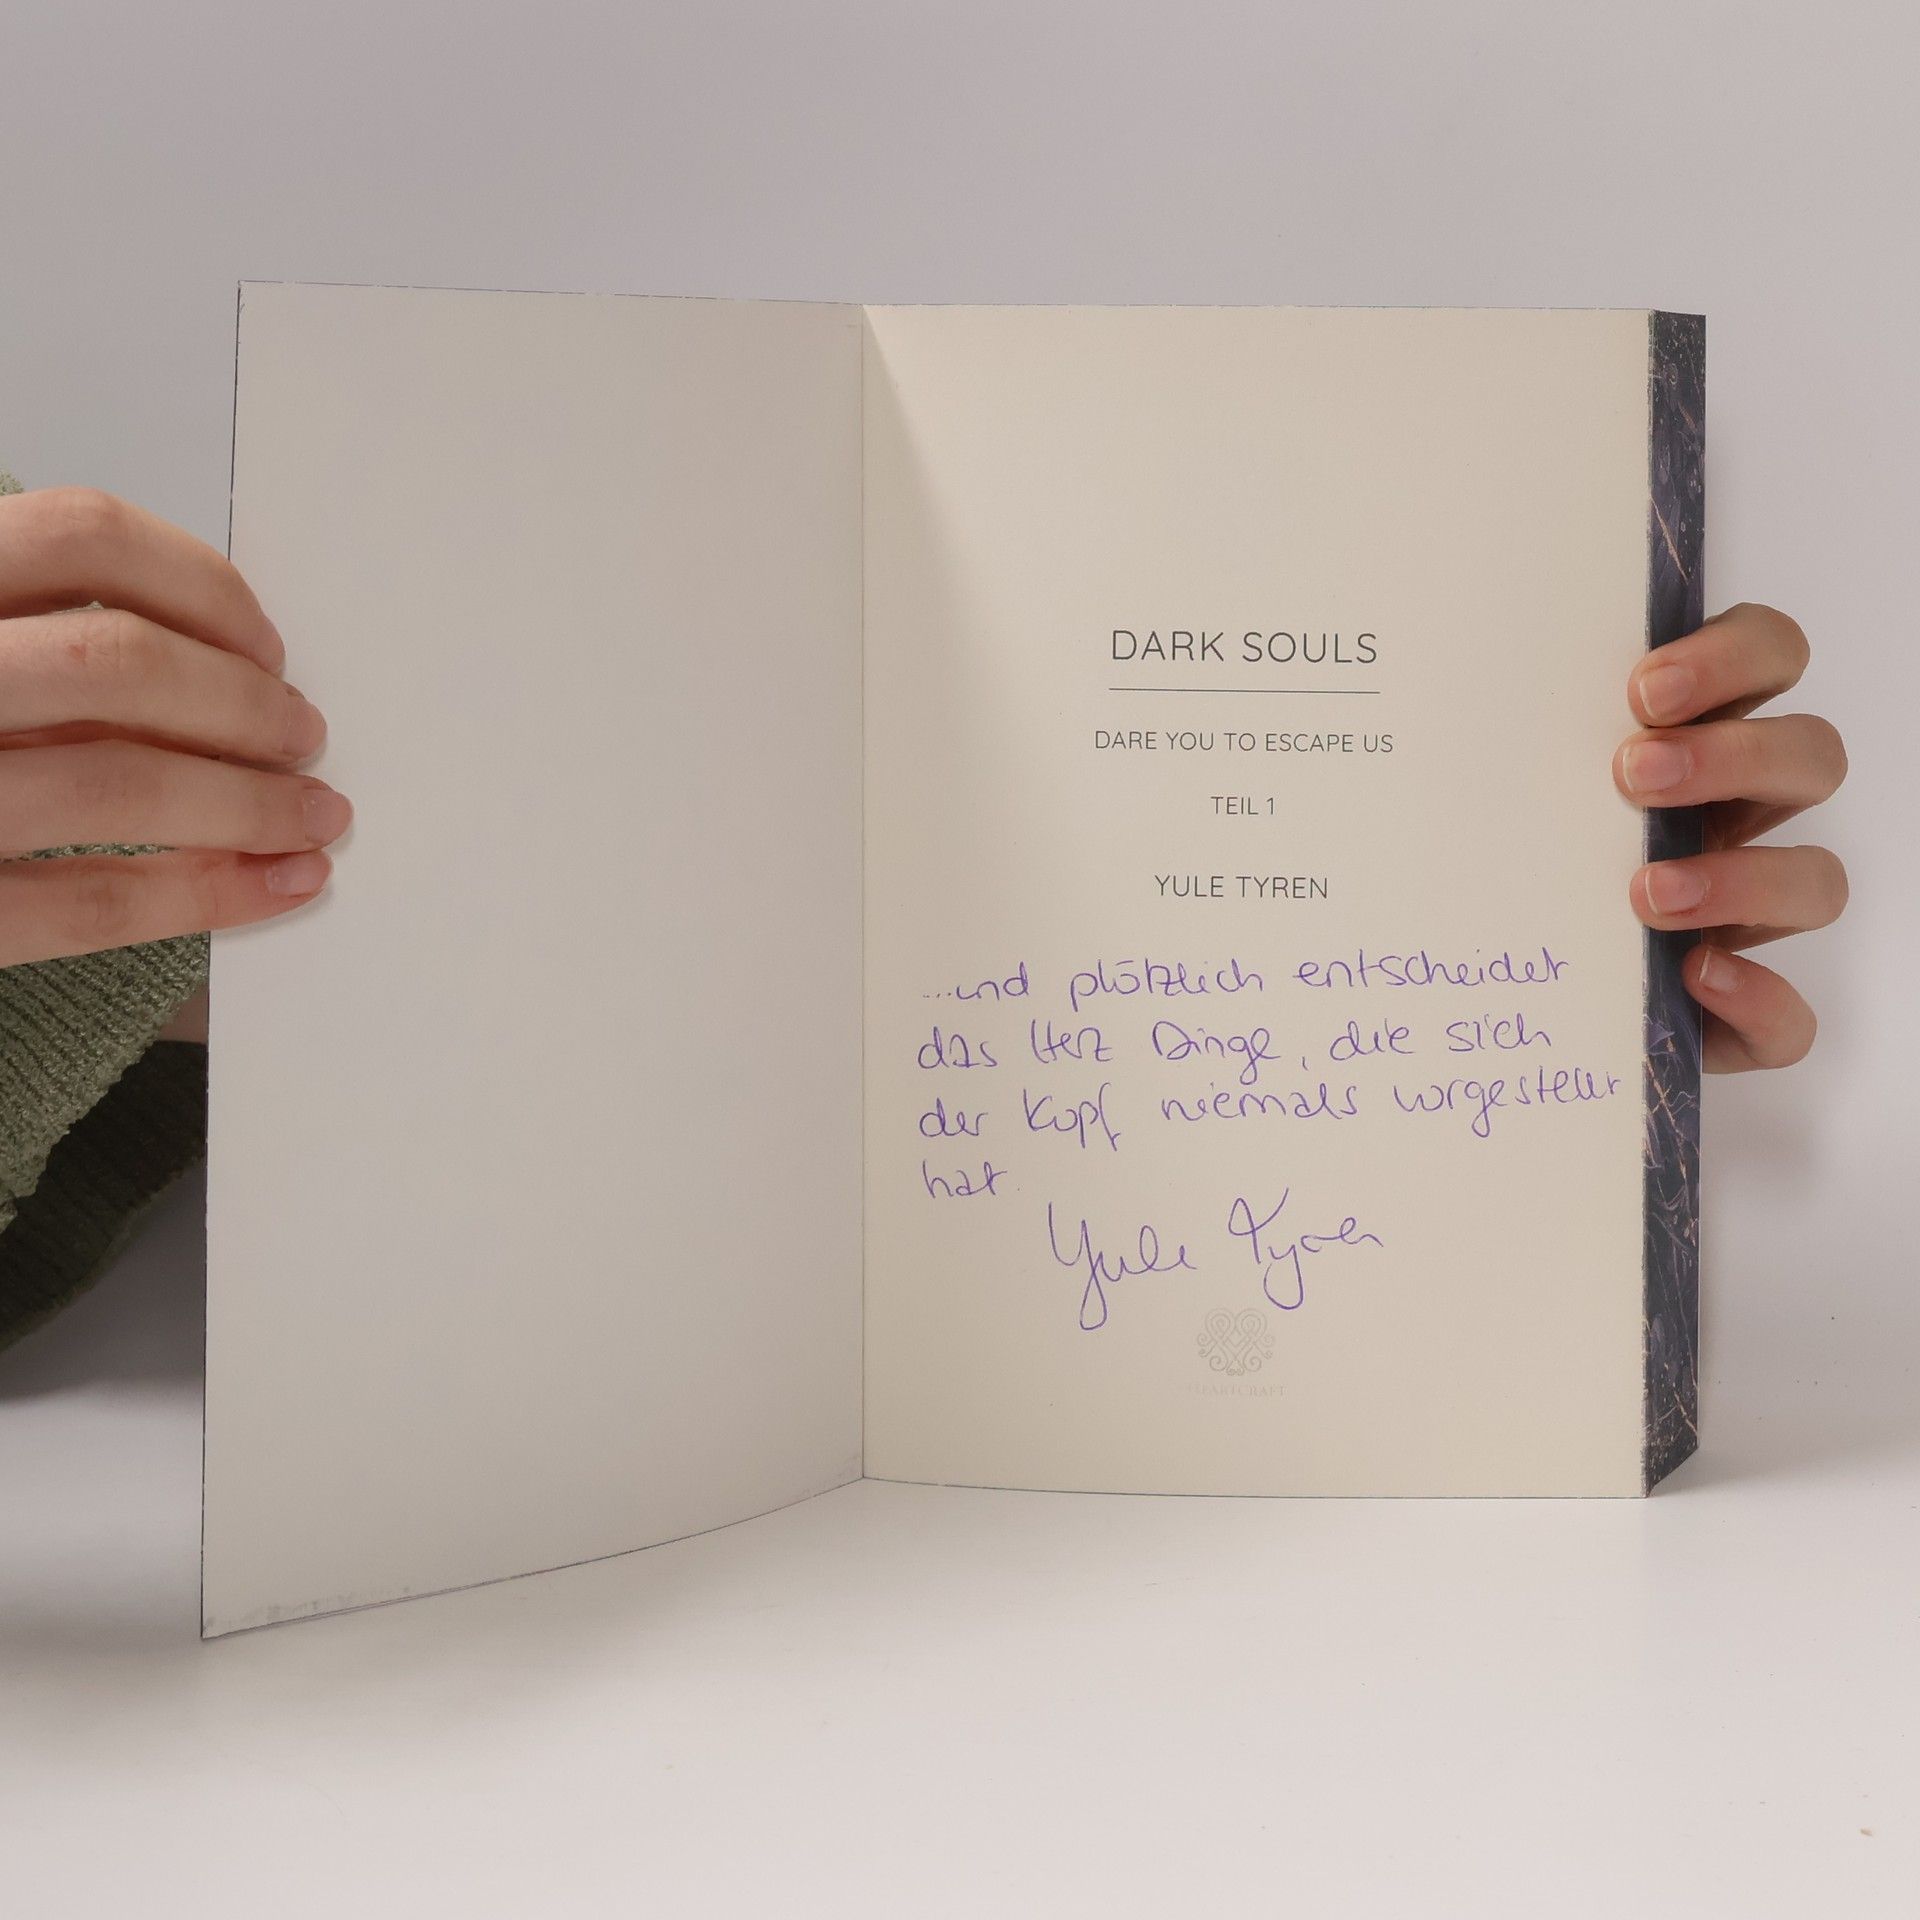 DARK SOULS
DARE YOU TO ESCAPE US
TEIL 1
YULE TYREN
...und plötzlich entscheidet
das Herz Dinge, die sich
der Kopf niemals vorgestellt
hat.
Yule Tyren
HEARTCRAFT